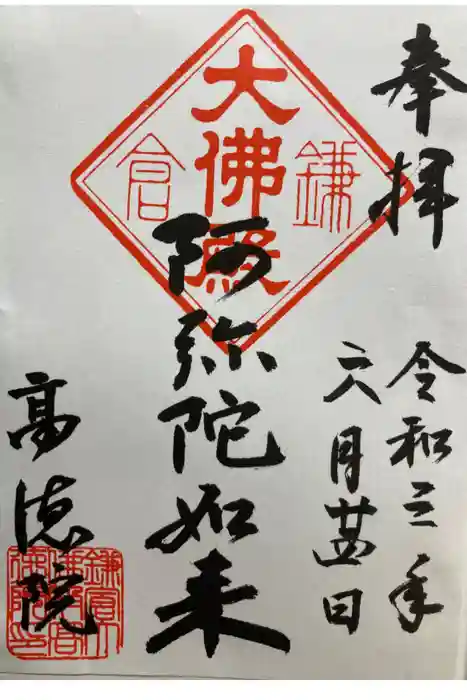 奉拝
令和三年
六月廿四日
鎌倉
大佛殿
阿弥陀如来
高徳院